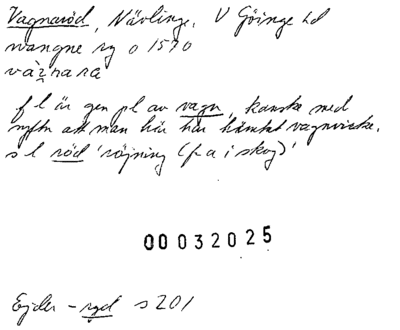 Vagnaröd, Nävlinge, V Göinge hd
wangne ry o 1570
f l är gen pl av vagn, kanske med
syftn att man här har hämtat vagnvirke.
s l röd 'röjning (f a i skog)'
00032025
Ejder - ryd s 201